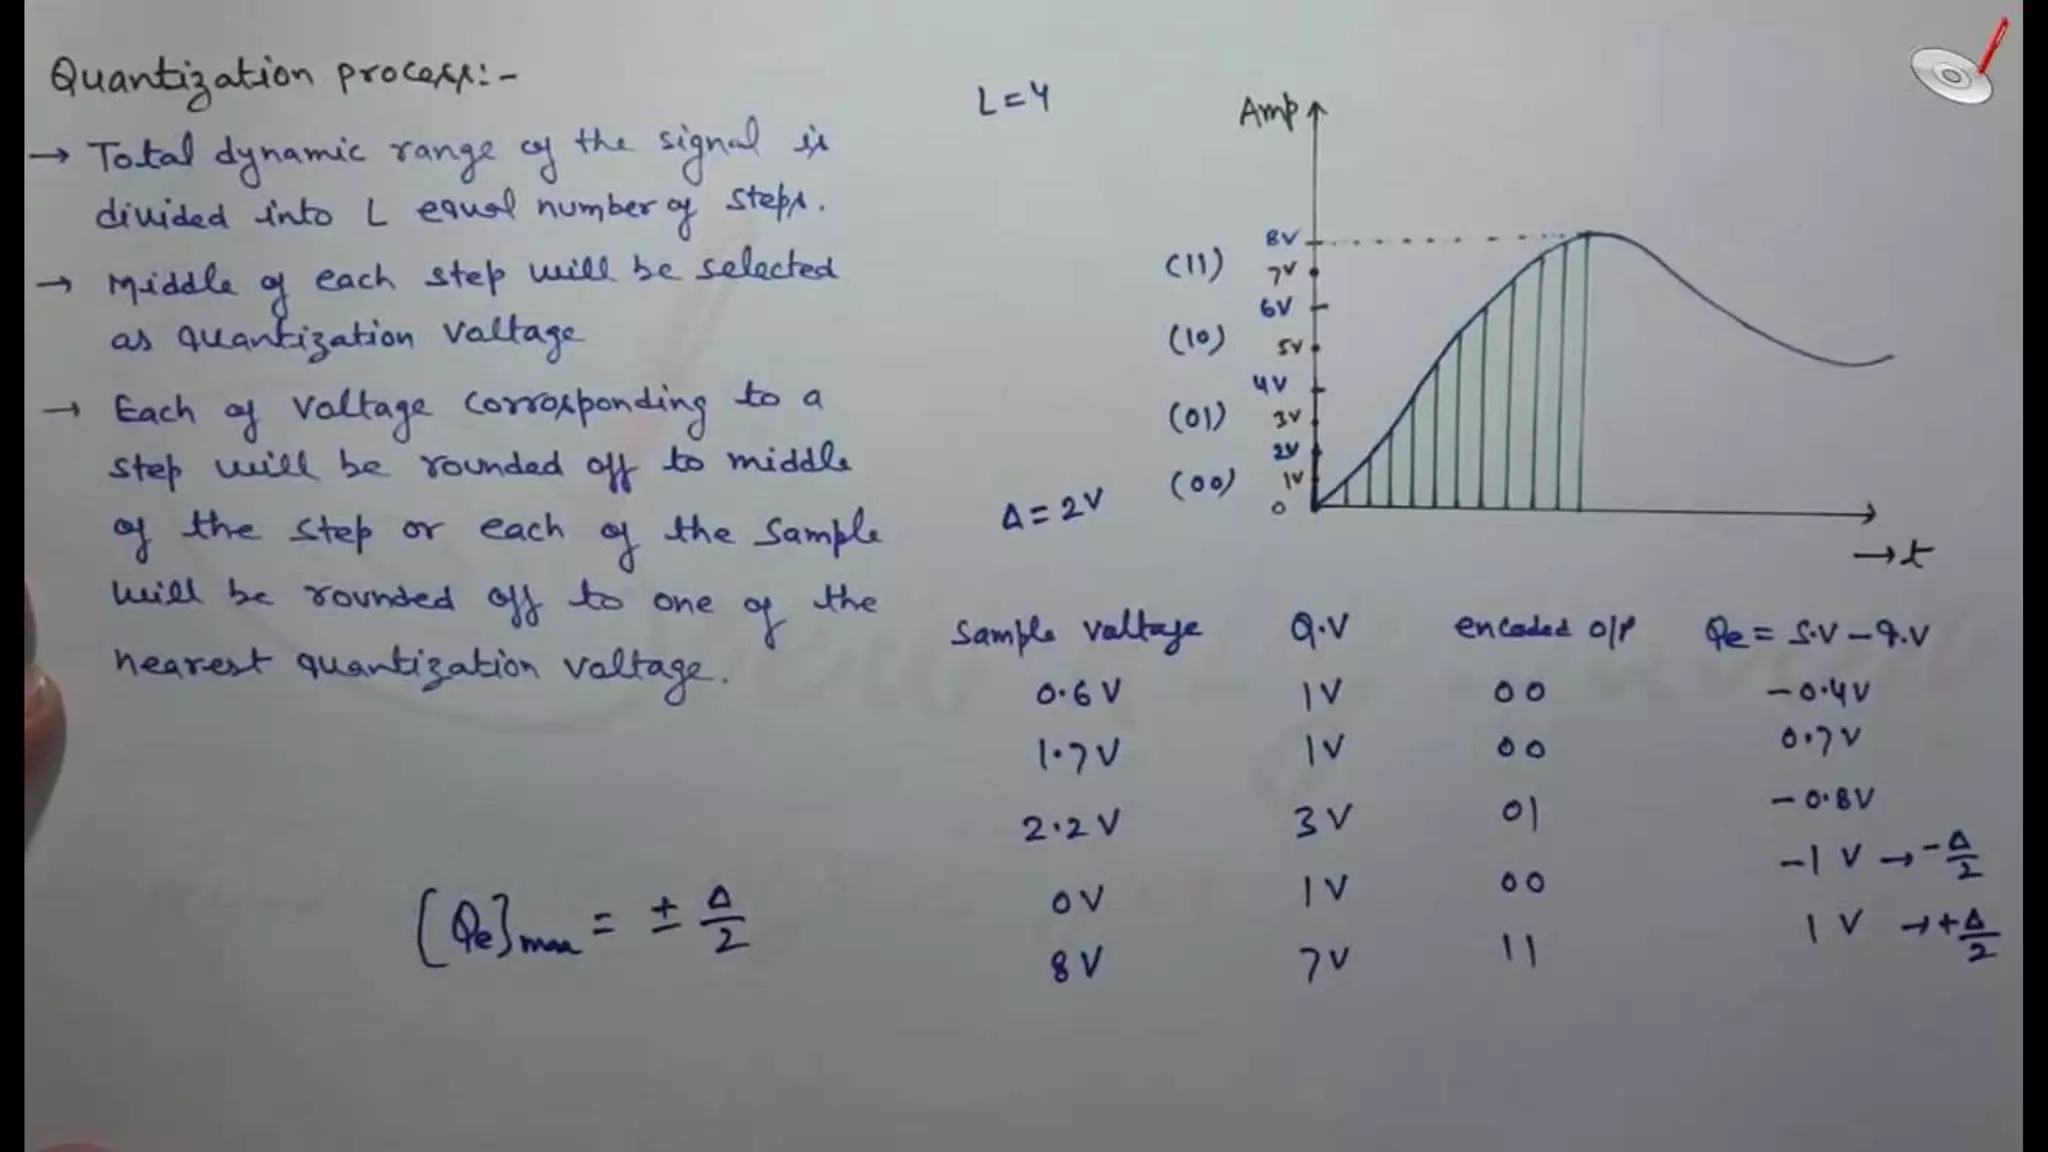 Quantization process:-
→ Total dynamic range of the signal is
divided into L equal number of steps.
→ Middle of each step will be selected
as quantization voltage
→ Each of voltage corrosponding to a
step will be rounded off to middle
of the step or each of the sample
will be rounded off to one of the
nearest quantization voltage.
[Qe]max = ± Δ/2
L=4
Δ=2V
Amp
8V
(11) 7V
6V
(10) 5V
4V
(01) 3V
2V
(00) 1V
0
→t
Sample voltage Q.V encoded o/p Qe = S.V - q.V
0.6V 1V 00 -0.4V
1.7V 1V 00 0.7V
2.2V 3V 01 -0.8V
0V 1V 00 -1V → -Δ/2
8V 7V 11 1V → +Δ/2